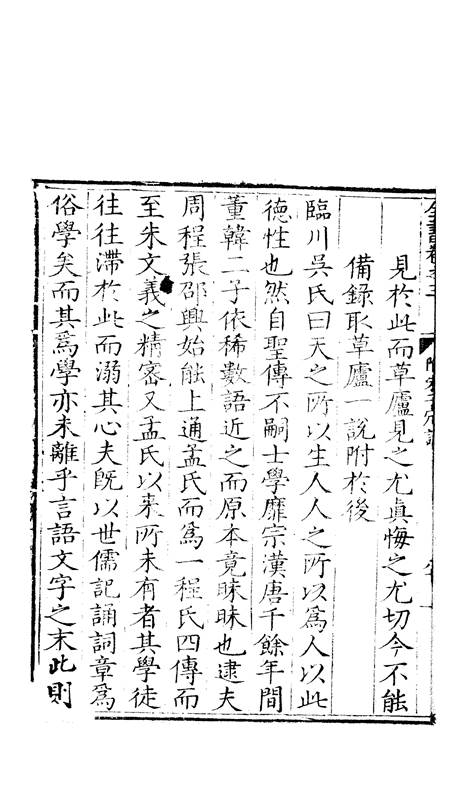 見於此而草廬見之尤真悔之尤切今不能
備錄取草廬一說附於後
臨川吳氏曰天之所以生人人之所以為人以此
德性也然自聖傳不嗣士學靡宗漢唐千餘年間
董韓二子依稀數語近之而原本竟昧昧也逮夫
周程張邵興始能上通孟氏而為一程氏四傳而
至朱文義之精密又孟氏以來所未有者其學徒
往往滯於此而溺其心夫既以世儒記誦詞章為
俗學矣而其為學亦未離乎言語文字之末此則